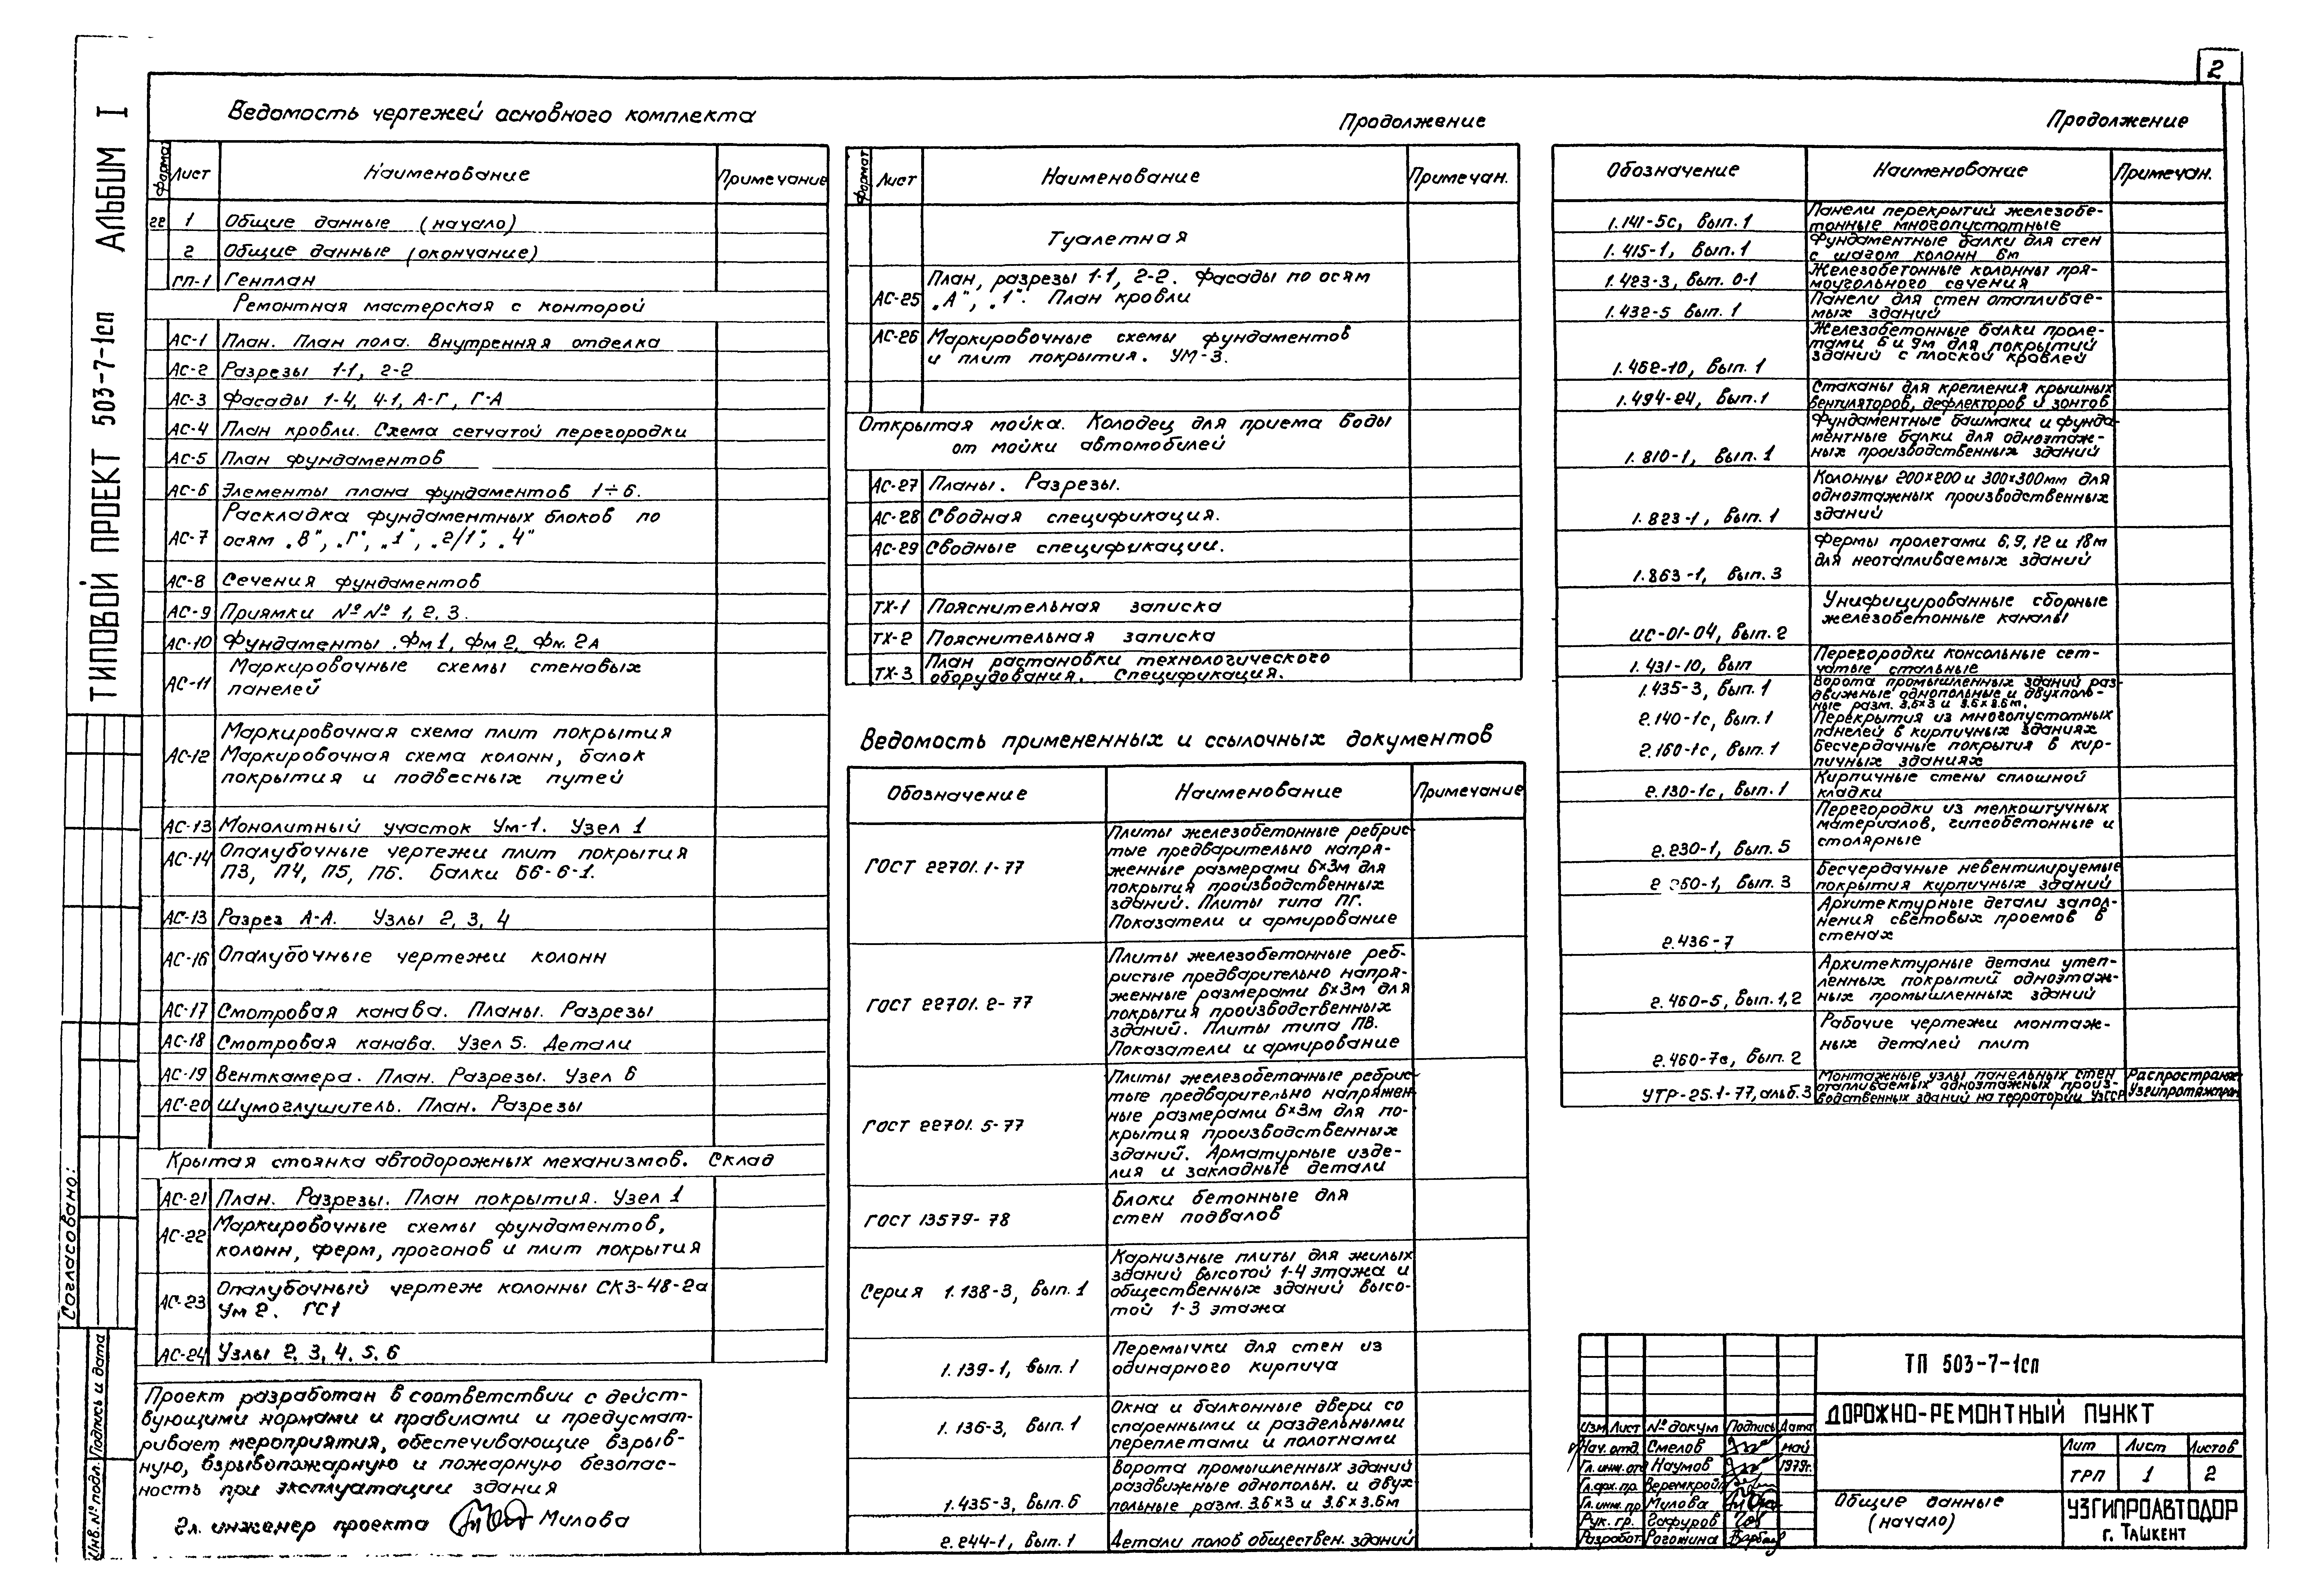 2
ТИПОВОЙ ПРОЕКТ 503-7-1сп АЛЬБОМ I
Ведомость чертежей основного комплекта
Формат Лист Наименование Примечание
22 1 Общие данные (начало)
2 Общие данные (окончание)
ГП-1 Генплан
Ремонтная мастерская с конторой
АС-1 План. План пола. Внутренняя отделка
АС-2 Разрезы 1-1, 2-2
АС-3 Фасады 1-4, 4-1, А-Г, Г-А
АС-4 План кровли. Схема сетчатой перегородки
АС-5 План фундаментов
АС-6 Элементы плана фундаментов 1÷6.
Раскладка фундаментных блоков по
АС-7 осям „В", „Г", „1", „2/1", „4"
АС-8 Сечения фундаментов
АС-9 Приямки №№ 1, 2, 3.
АС-10 Фундаменты Фм1, Фм2, Фм.2А
Маркировочные схемы стеновых
АС-11 панелей
Маркировочная схема плит покрытия
АС-12 Маркировочная схема колонн, балок
покрытия и подвесных путей
АС-13 Монолитный участок Ум-1. Узел 1
АС-14 Опалубочные чертежи плит покрытия
П3, П4, П5, П6. Балки Б6-6-1.
АС-13 Разрез А-А. Узлы 2, 3, 4
АС-16 Опалубочные чертежи колонн
АС-17 Смотровая канава. Планы. Разрезы
АС-18 Смотровая канава. Узел 5. Детали
АС-19 Венткамера. План. Разрезы. Узел 6
АС-20 Шумоглушитель. План. Разрезы
Крытая стоянка автодорожных механизмов. Склад
АС-21 План. Разрезы. План покрытия. Узел 1
АС-22 Маркировочные схемы фундаментов,
колонн, ферм, прогонов и плит покрытия
Опалубочный чертеж колонны СК3-48-2а
АС-23 Ум 2. ГС1
АС-24 Узлы 2, 3, 4, 5, 6
Проект разработан в соответствии с дейст-
вующими нормами и правилами и предусмат-
ривает мероприятия, обеспечивающие взрыв-
ную, взрывопожарную и пожарную безопас-
ность при эксплуатации здания
Гл. инженер проекта Милова
Согласовано:
Инв. № подл. Подпись и дата
Продолжение
Формат Лист Наименование Примечан.
Туалетная
План, разрезы 1-1, 2-2. Фасады по осям
АС-25 „А", „1". План кровли
АС-26 Маркировочные схемы фундаментов
и плит покрытия. УМ-3.
Открытая мойка. Колодец для приема воды
от мойки автомобилей
АС-27 Планы. Разрезы.
АС-28 Сводная спецификация.
АС-29 Сводные спецификации.
ТХ-1 Пояснительная записка
ТХ-2 Пояснительная записка
План растановки технологического
ТХ-3 оборудования. Спецификация.
Ведомость примененных и ссылочных документов
Обозначение Наименование Примечание
Плиты железобетонные ребрис-
тые предварительно напря-
ГОСТ 22701.1-77 женные размерами 6×3м для
покрытия производственных
зданий. Плиты типа ПГ.
Показатели и армирование
Плиты железобетонные реб-
ристые предварительно напря-
женные размерами 6×3м для
ГОСТ 22701.2-77 покрытия производственных
зданий. Плиты типа ПВ.
Показатели и армирование
Плиты железобетонные ребрис-
тые предварительно напряжен-
ные размерами 6×3м для по-
ГОСТ 22701.5-77 крытия производственных
зданий. Арматурные изде-
лия и закладные детали
Блоки бетонные для
ГОСТ 13579-78 стен подвалов
Карнизные плиты для жилых
зданий высотой 1-4 этажа и
Серия 1.138-3, вып. 1 общественных зданий высо-
той 1-3 этажа
Перемычки для стен из
1.139-1, вып. 1 одинарного кирпича
Окна и балконные двери со
1.136-3, вып. 1 спаренными и раздельными
переплетами и полотнами
Ворота промышленных зданий
раздвижные однопольн. и двух
1.435-3, вып. 6 польные разм. 3.6×3 и 3.6×3.6м
2.244-1, вып. 1 Детали полов обществен. зданий
Продолжение
Обозначение Наименование Примечан.
Панели перекрытий железобе-
1.141-5с, вып. 1 тонные многопустотные
Фундаментные балки для стен
1.415-1, вып. 1 с шагом колонн 6м
Железобетонные колонны пря-
1.423-3, вып. 0-1 моугольного сечения
Панели для стен отапливае-
1.432-5 вып. 1 мых зданий
Железобетонные балки проле-
тами 6 и 9м для покрытий
зданий с плоской кровлей
1.462-10, вып. 1
Стаканы для крепления крышных
1.494-24, вып. 1 вентиляторов, дефлекторов и зонтов
Фундаментные башмаки и фунда-
ментные балки для одноэтаж-
1.810-1, вып. 1 ных производственных зданий
Колонны 200×200 и 300×300мм для
одноэтажных производственных
1.823-1, вып. 1 зданий
Фермы пролетами 6, 9, 12 и 18м
для неотапливаемых зданий
1.863-1, вып. 3
Унифицированные сборные
железобетонные каналы
ИС-01-04, вып. 2
Перегородки консольные сет-
1.431-10, вып чатые стальные
Ворота промышленных зданий раз
1.435-3, вып. 1 движные однопольные и двухполь-
ные разм. 3.6×3 и 3.6×3.6м.
2.140-1с, вып. 1 Перекрытия из многопустотных
панелей в кирпичных зданиях
2.160-1с, вып. 1 Бесчердачные покрытия в кир-
пичных зданиях
Кирпичные стены сплошной
2.130-1с, вып. 1 кладки
Перегородки из мелкоштучных
материалов, гипсобетонные и
2.230-1, вып. 5 столярные
Бесчердачные невентилируемые
2.260-1, вып. 3 покрытия кирпичных зданий
Архитектурные детали запол-
нения световых проемов в
2.436-7 стенах
Архитектурные детали утеп-
ленных покрытий одноэтаж-
2.460-5, вып. 1,2 ных промышленных зданий
Рабочие чертежи монтаж-
ных деталей плит
2.460-7с, вып. 2
Монтажные узлы панельных стен Распространяет
отапливаемых одноэтажных произ- Узгипротяжпром
УТР-25.1-77, альб. 3 водственных зданий на территории УзССР
ТП 503-7-1сп
ДОРОЖНО-РЕМОНТНЫЙ ПУНКТ
Изм Лист № докум Подпись Дата
Нач. отд. Смелов май
Гл. инж. отд Наумов 1979г.
Гл. арх. пр.
Гл. инж. пр. Милова
Рук. гр. Гафуров
Разработ. Рогожина
Лит Лист Листов
ТРП 1 2
Общие данные
(начало)
УЗГИПРОАВТОДОР
г. Ташкент